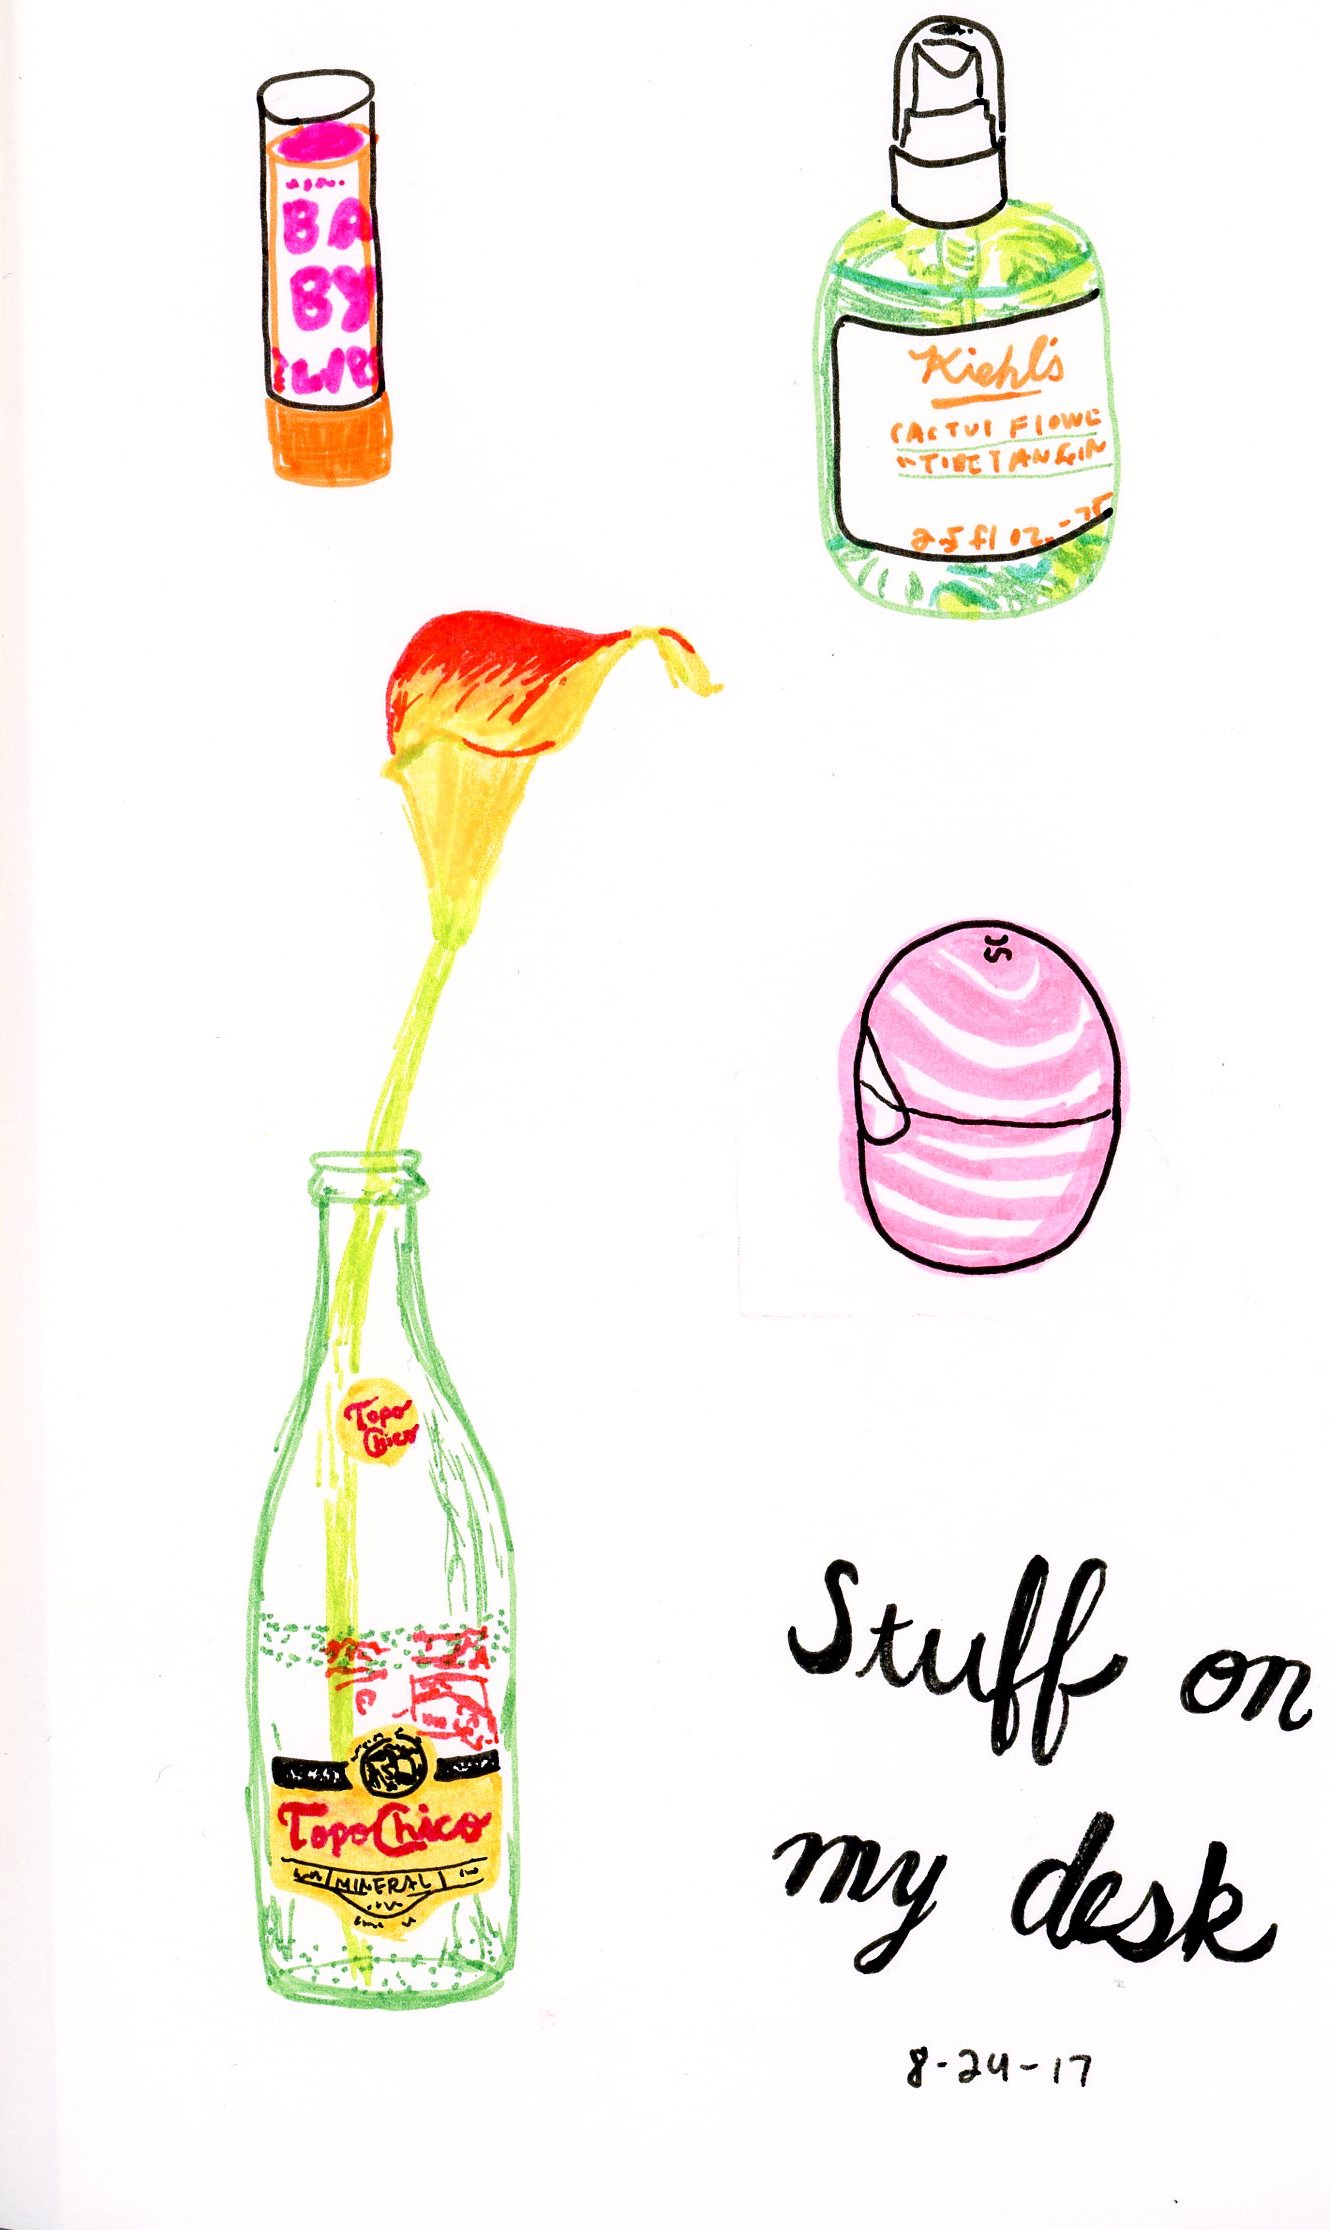 BA
BY
LIPS
Kiehl's
CACTUS FLOWE
TIBETAN GIN
2.5 fl oz. - 75
SC
Topo
Chico
Topo Chico
MINERAL
Stuff on
my desk
8-24-17